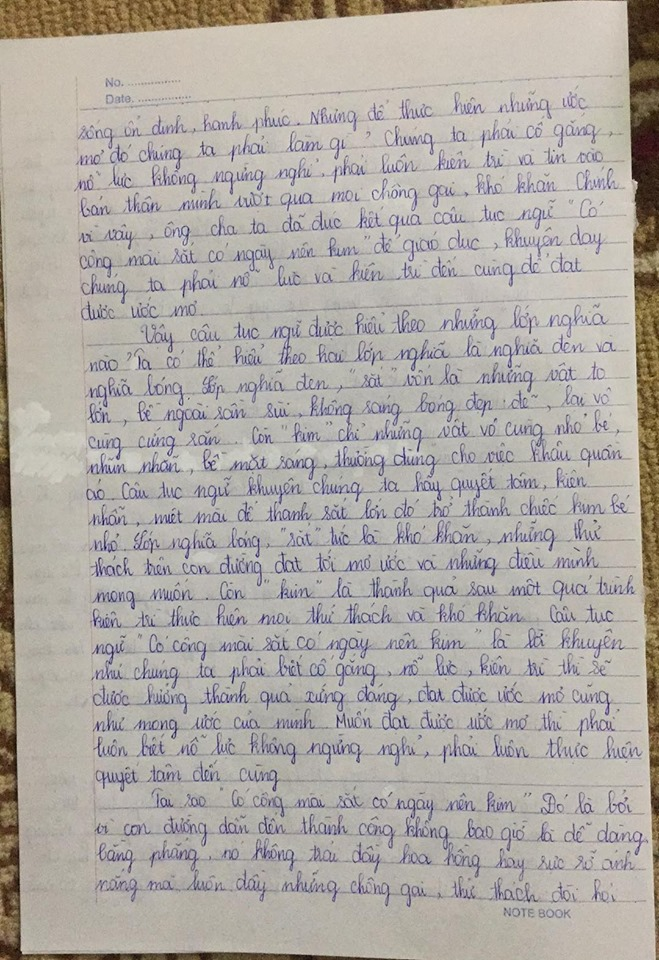 No. ................
Date. ................
sống ổn định, hạnh phúc. Nhưng để thực hiện những ước
mơ đó chúng ta phải làm gì? Chúng ta phải cố gắng,
nỗ lực không ngừng nghỉ, phải luôn kiên trì và tin vào
bản thân mình vượt qua mọi chông gai, khó khăn. Chính
vì vậy, ông cha ta đã đúc kết qua câu tục ngữ "Có
công mài sắt có ngày nên kim" để giáo dục, khuyên dạy
chúng ta phải nỗ lực và kiên trì đến cùng để đạt
được ước mơ.
Vậy câu tục ngữ được hiểu theo những lớp nghĩa
nào? Ta có thể hiểu theo hai lớp nghĩa là nghĩa đen và
nghĩa bóng. Lớp nghĩa đen, "sắt" vốn là những vật to
lớn, bề ngoài sần sùi, không sáng bóng đẹp đẽ, lại vô
cùng cứng sắn. Còn "kim" chỉ những vật vô cùng nhỏ bé,
nhìn nhắn, bề mặt sáng, thường dùng cho việc khâu quần
áo. Câu tục ngữ khuyên chúng ta hãy quyết tâm, kiên
nhẫn, miệt mài để thanh sắt lớn đó trở thành chiếc kim bé
nhỏ. Lớp nghĩa bóng, "sắt" tức là khó khăn, những thử
thách trên con đường đạt tới mơ ước và những điều mình
mong muốn. Còn "kim" là thành quả sau một quá trình
kiên trì thực hiện mọi thử thách và khó khăn. Câu tục
ngữ "Có công mài sắt có ngày nên kim" là lời khuyên
như chúng ta phải biết cố gắng, nỗ lực, kiên trì thì sẽ
được hưởng thành quả xứng đáng, đạt được ước mơ cũng
như mong ước của mình. Muốn đạt được ước mơ thì phải
luôn biết nỗ lực không ngừng nghỉ, phải luôn thực hiện
quyết tâm đến cùng.
Tại sao "Có công mài sắt có ngày nên kim" Đó là bởi
vì con đường dẫn đến thành công không bao giờ là dễ dàng,
bằng phẳng, nó không trải đầy hoa hồng hay rực rỡ ánh
nắng mà luôn đầy những chông gai, thử thách đòi hỏi
NOTE BOOK